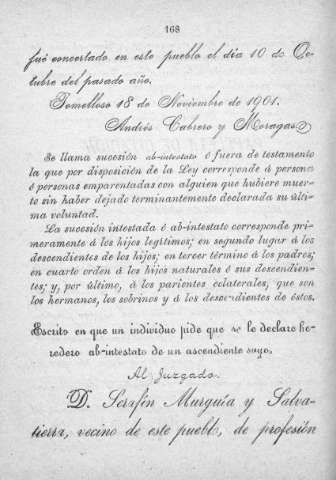 168
fué concertado en este pueblo el día 10 de Oc-
tubre del pasado año.
Tomelloso 18 de Noviembre de 1901.
Andrés Cabrero y Moragas
Se llama sucesión ab-intestato ó fuera de testamento
la que por disposición de la Ley corresponde á persona
ó personas emparentadas con alguien que hubiere muer-
to sin haber dejado terminantemente declarada su últi-
ma voluntad.
La sucesión intestada ó ab-intestato corresponde pri-
meramente á los hijos legítimos; en segundo lugar á los
descendientes de los hijos; en tercer término á los padres;
en cuarto orden á los hijos naturales ó sus descendien-
tes; y, por último, á los parientes colaterales, que son
los hermanos, los sobrinos y á los descendientes de éstos.
Escrito en que un individuo pide que se le declare he-
redero ab-intestato de un ascendiente suyo.
Al Juzgado.
D. Serafín Murguía y Salva-
tierra, vecino de este pueblo, de profesión